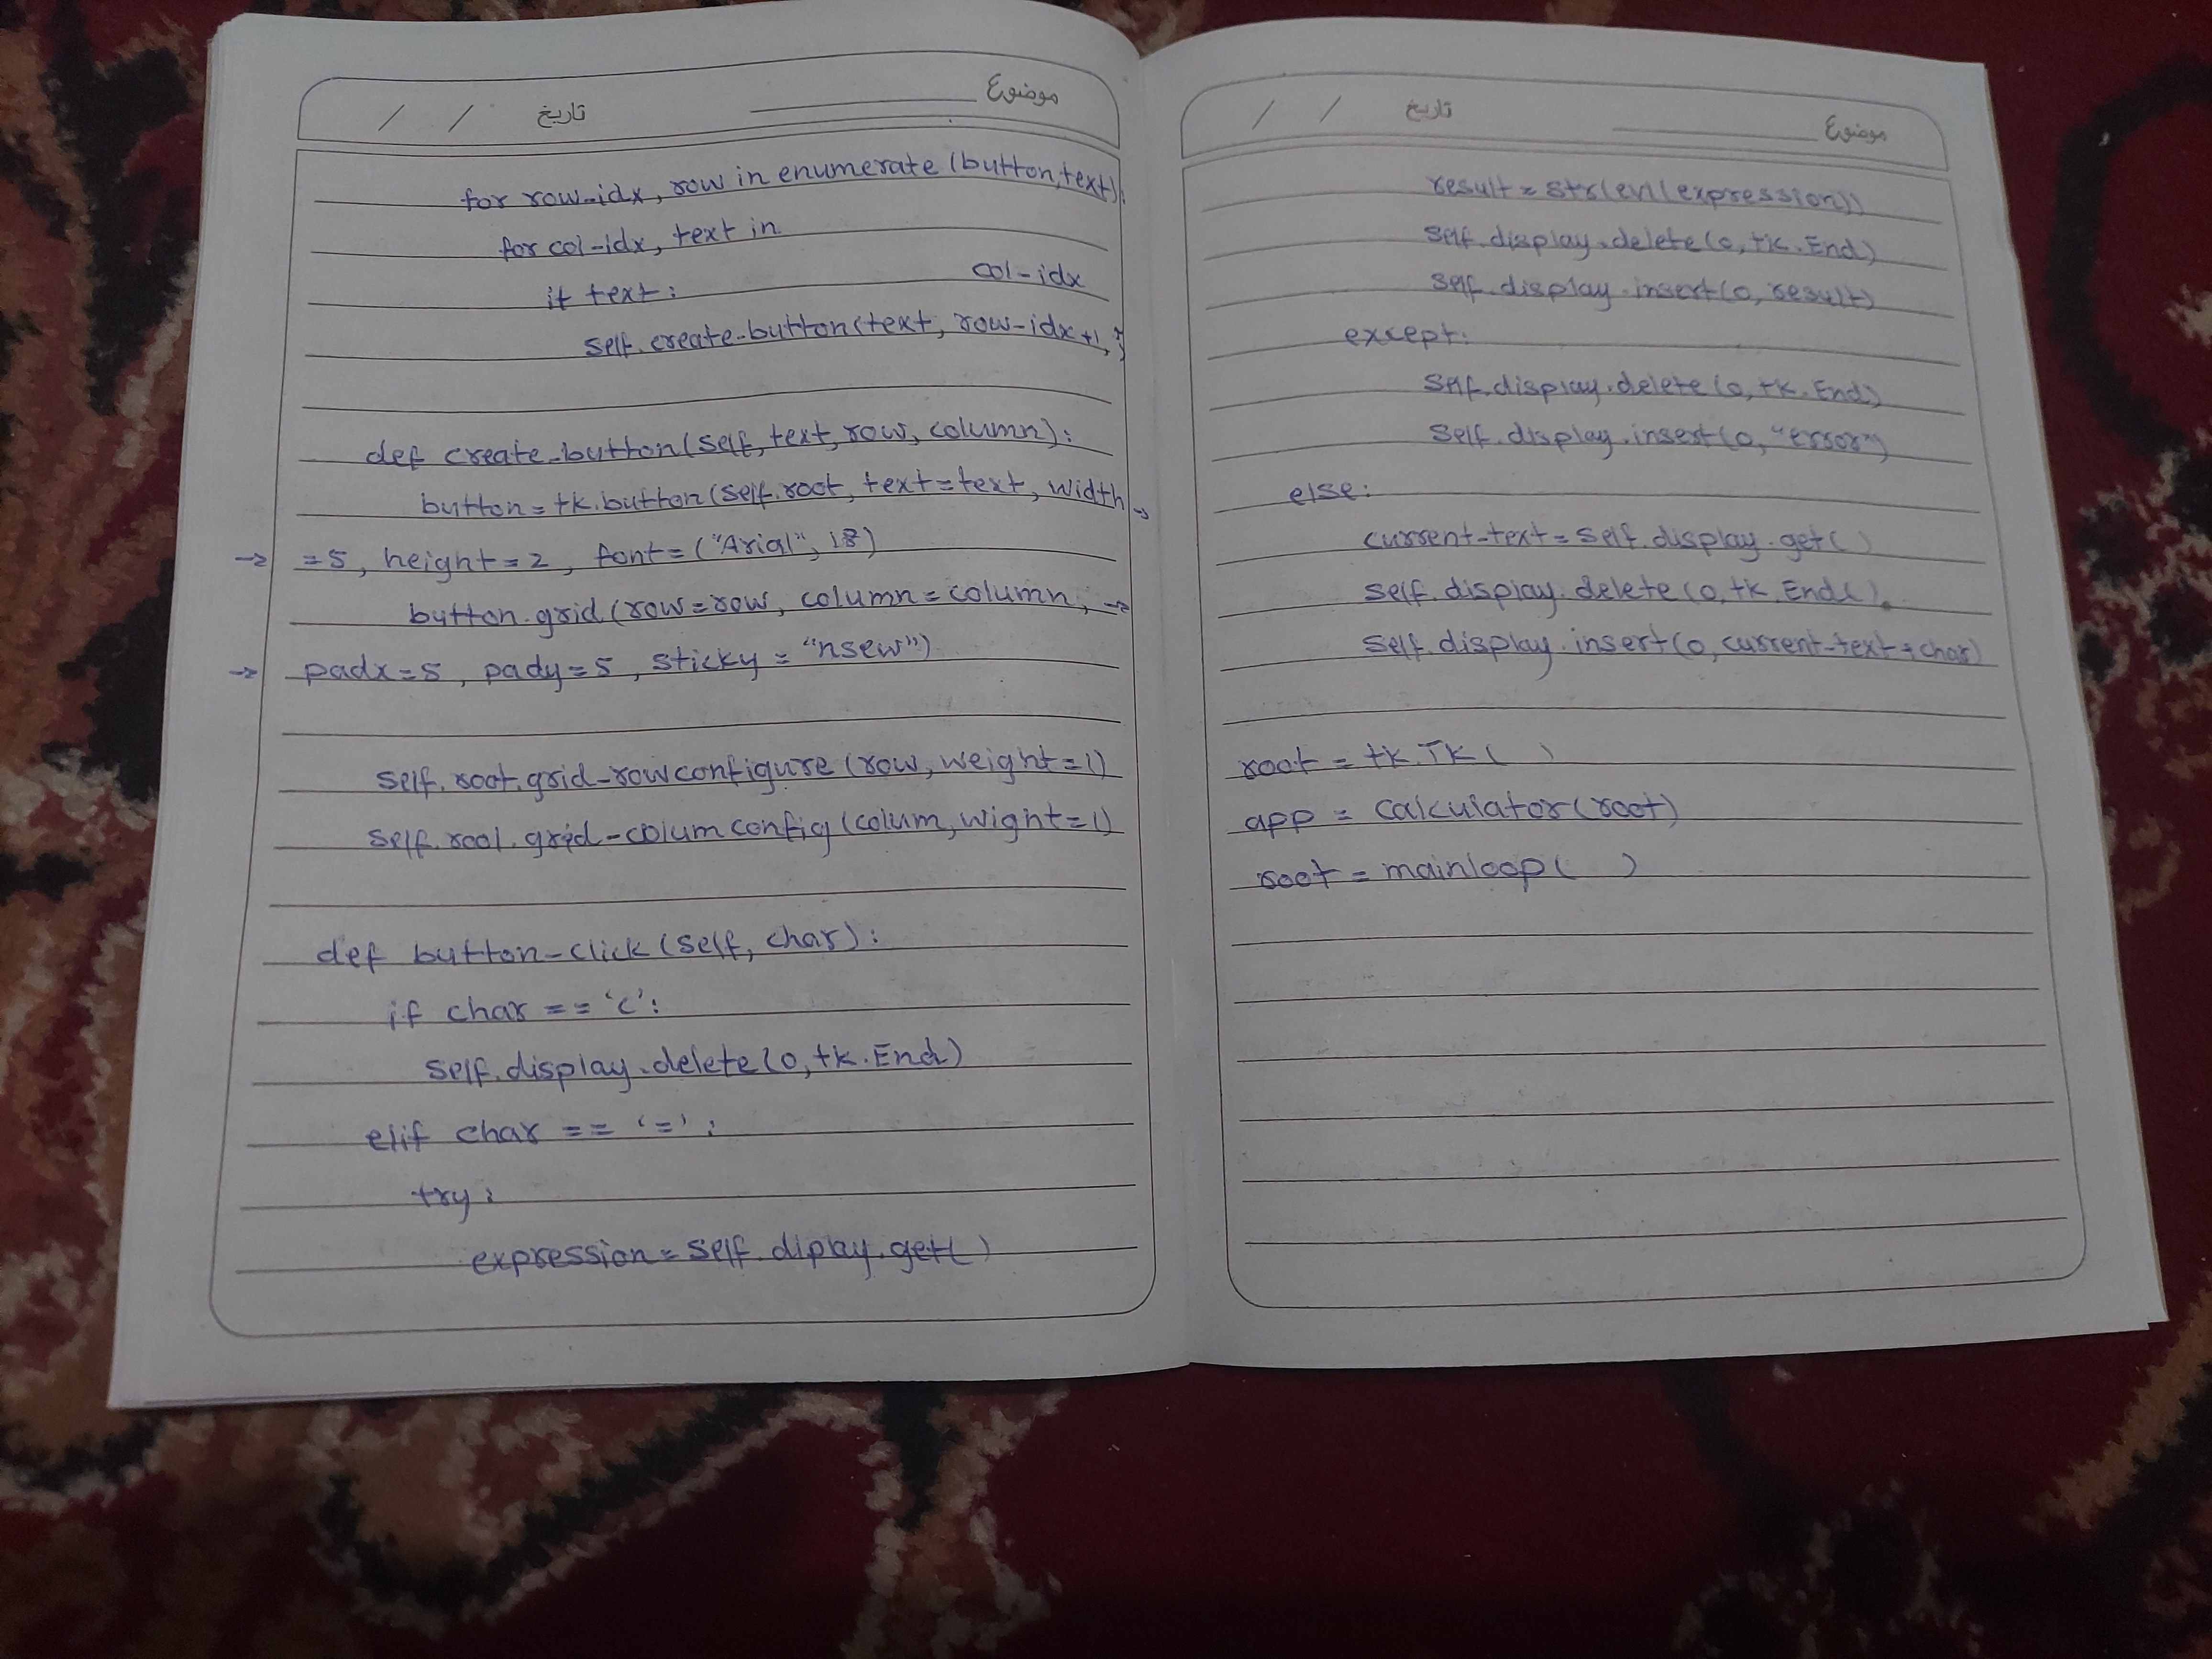 تاریخ / / موضوع
for row-idx, row in enumerate (button,text),
for col-idx, text in
if text: col-idx
self. create-button(text, row-idx+1, ↑
def create-button(self, text, row, column):
button = tk.button(self.root, text=text, width →
→ =5, height=2, font=("Arial", 18)
button.grid(row=row, column=column, →
→ padx=5, pady=5, sticky="nsew")
self.root.grid-rowconfigure(row, weight=1)
self.rool.gred-colum config(colum, wight=1)
def button-click(self, char):
if char == 'c':
self.display.delete(0, tk.End)
elif char == '=':
try:
expression=self.diplay.get()
تاریخ / / موضوع
result=str(evl(expression))
self.display.delete(0, tk.End)
self.display.insert(0, result)
except:
self.display.delete(0, tk.End)
self.display.insert(0, "error")
else:
current-text=self.display.get( )
self.display.delete(0, tk.End().
self.display.insert(0, current-text+char)
root = tk.Tk( )
app = calculator(root)
root = mainloop( )